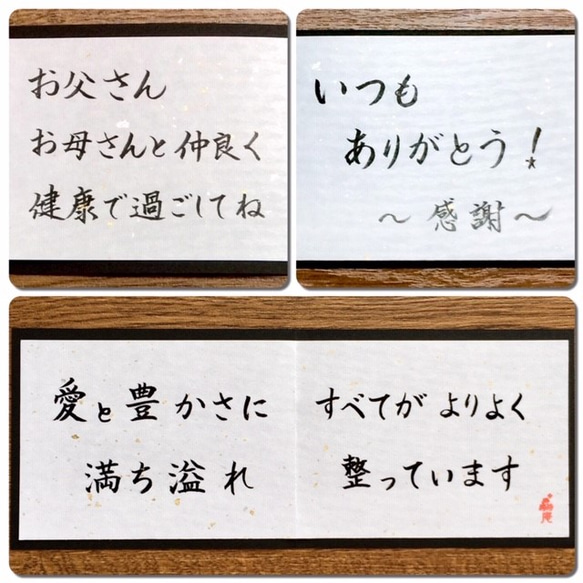 お父さん
お母さんと仲良く
健康で過ごしてね
いつも
ありがとう!
〜感謝〜
愛と豊かさに
満ち溢れ
すべてがよりよく
整っています